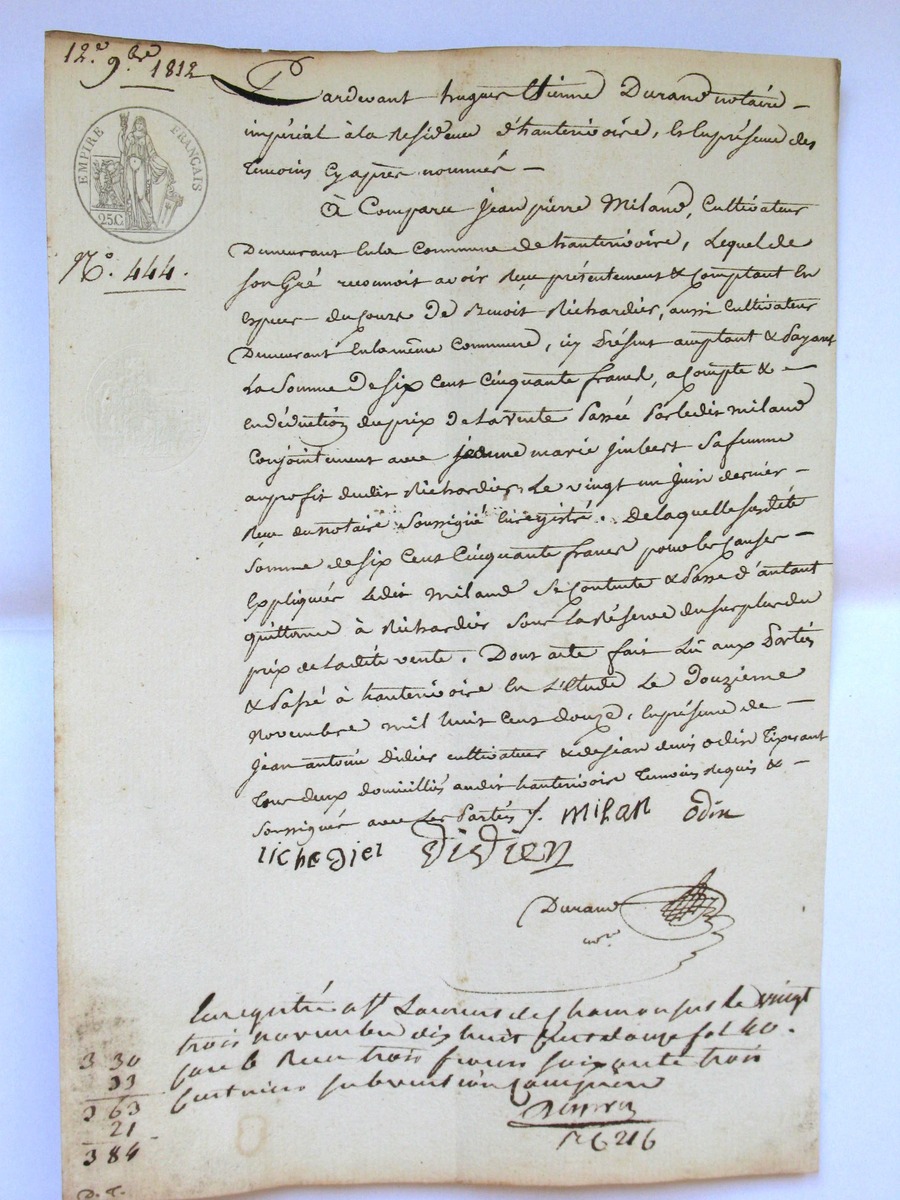 12.e 9.bre 1812
EMPIRE FRANÇAIS
25C
N.o 444.
Pardevant hugues Etienne Durand notaire
impérial à la Residence d'hauterivoire, & En présence des
temoins Cy après nommés
A Comparu Jean pierre Miland, Cultivateur
Demeurant En la Commune de hauterivoire, Lequel de
son Gré reconnoit avoir Reçu présentement & Comptant En
Especes du cours De Benoit Richardier, aussi Cultivateur
Demeurant En la même Commune, icy Présent acceptant & Payant
La Somme De Six Cent Cinquante francs, a Compte &
en déduction du prix de La vente Passée Par ledit miland
Conjointement avec jeanne marie Jmbert Sa femme
au profit dudit Richardier, Le vingt un Juin dernier
Reçue du notaire Soussigné Enregistré. De laquelle susdite
Somme de Six Cent Cinquante francs pour les Causes
Expliquées Ledit miland Se Contente & Passe d'autant
quittance à Richardier Sous La Réserve du surplus du
prix de Ladite vente. Dont acte fait Lu aux Parties
& Passé à hauterivoire En L'étude Le Douzieme
Novembre mil huit Cent douze, En présence de
Jean antoine Didier cultivateur & de jean denis odin Tixerant
Tous deux domiciliés audit hauterivoire Temoins Requis &
Soussignés avec Les Parties
Milan
odin
richedier
didien
Durand
nore
Enregistré a St Laurent de chamousset le vingt
trois novembre dix huit Cent douze fol 40.
Case 6 Reçu trois francs soixante trois
Centimes subvention Comprise
3 30
33
3 63
21
3 84